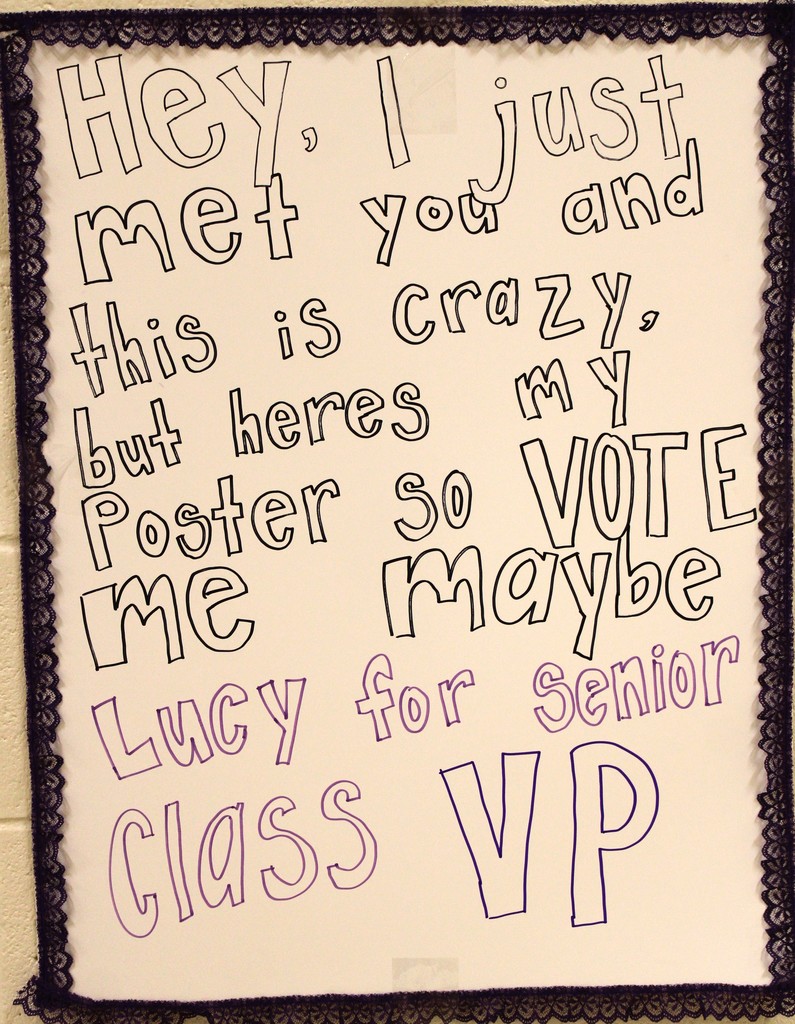 Hey, I just
met you and
this is crazy,
but heres my
Poster so VOTE
me maybe
Lucy for senior
Class VP